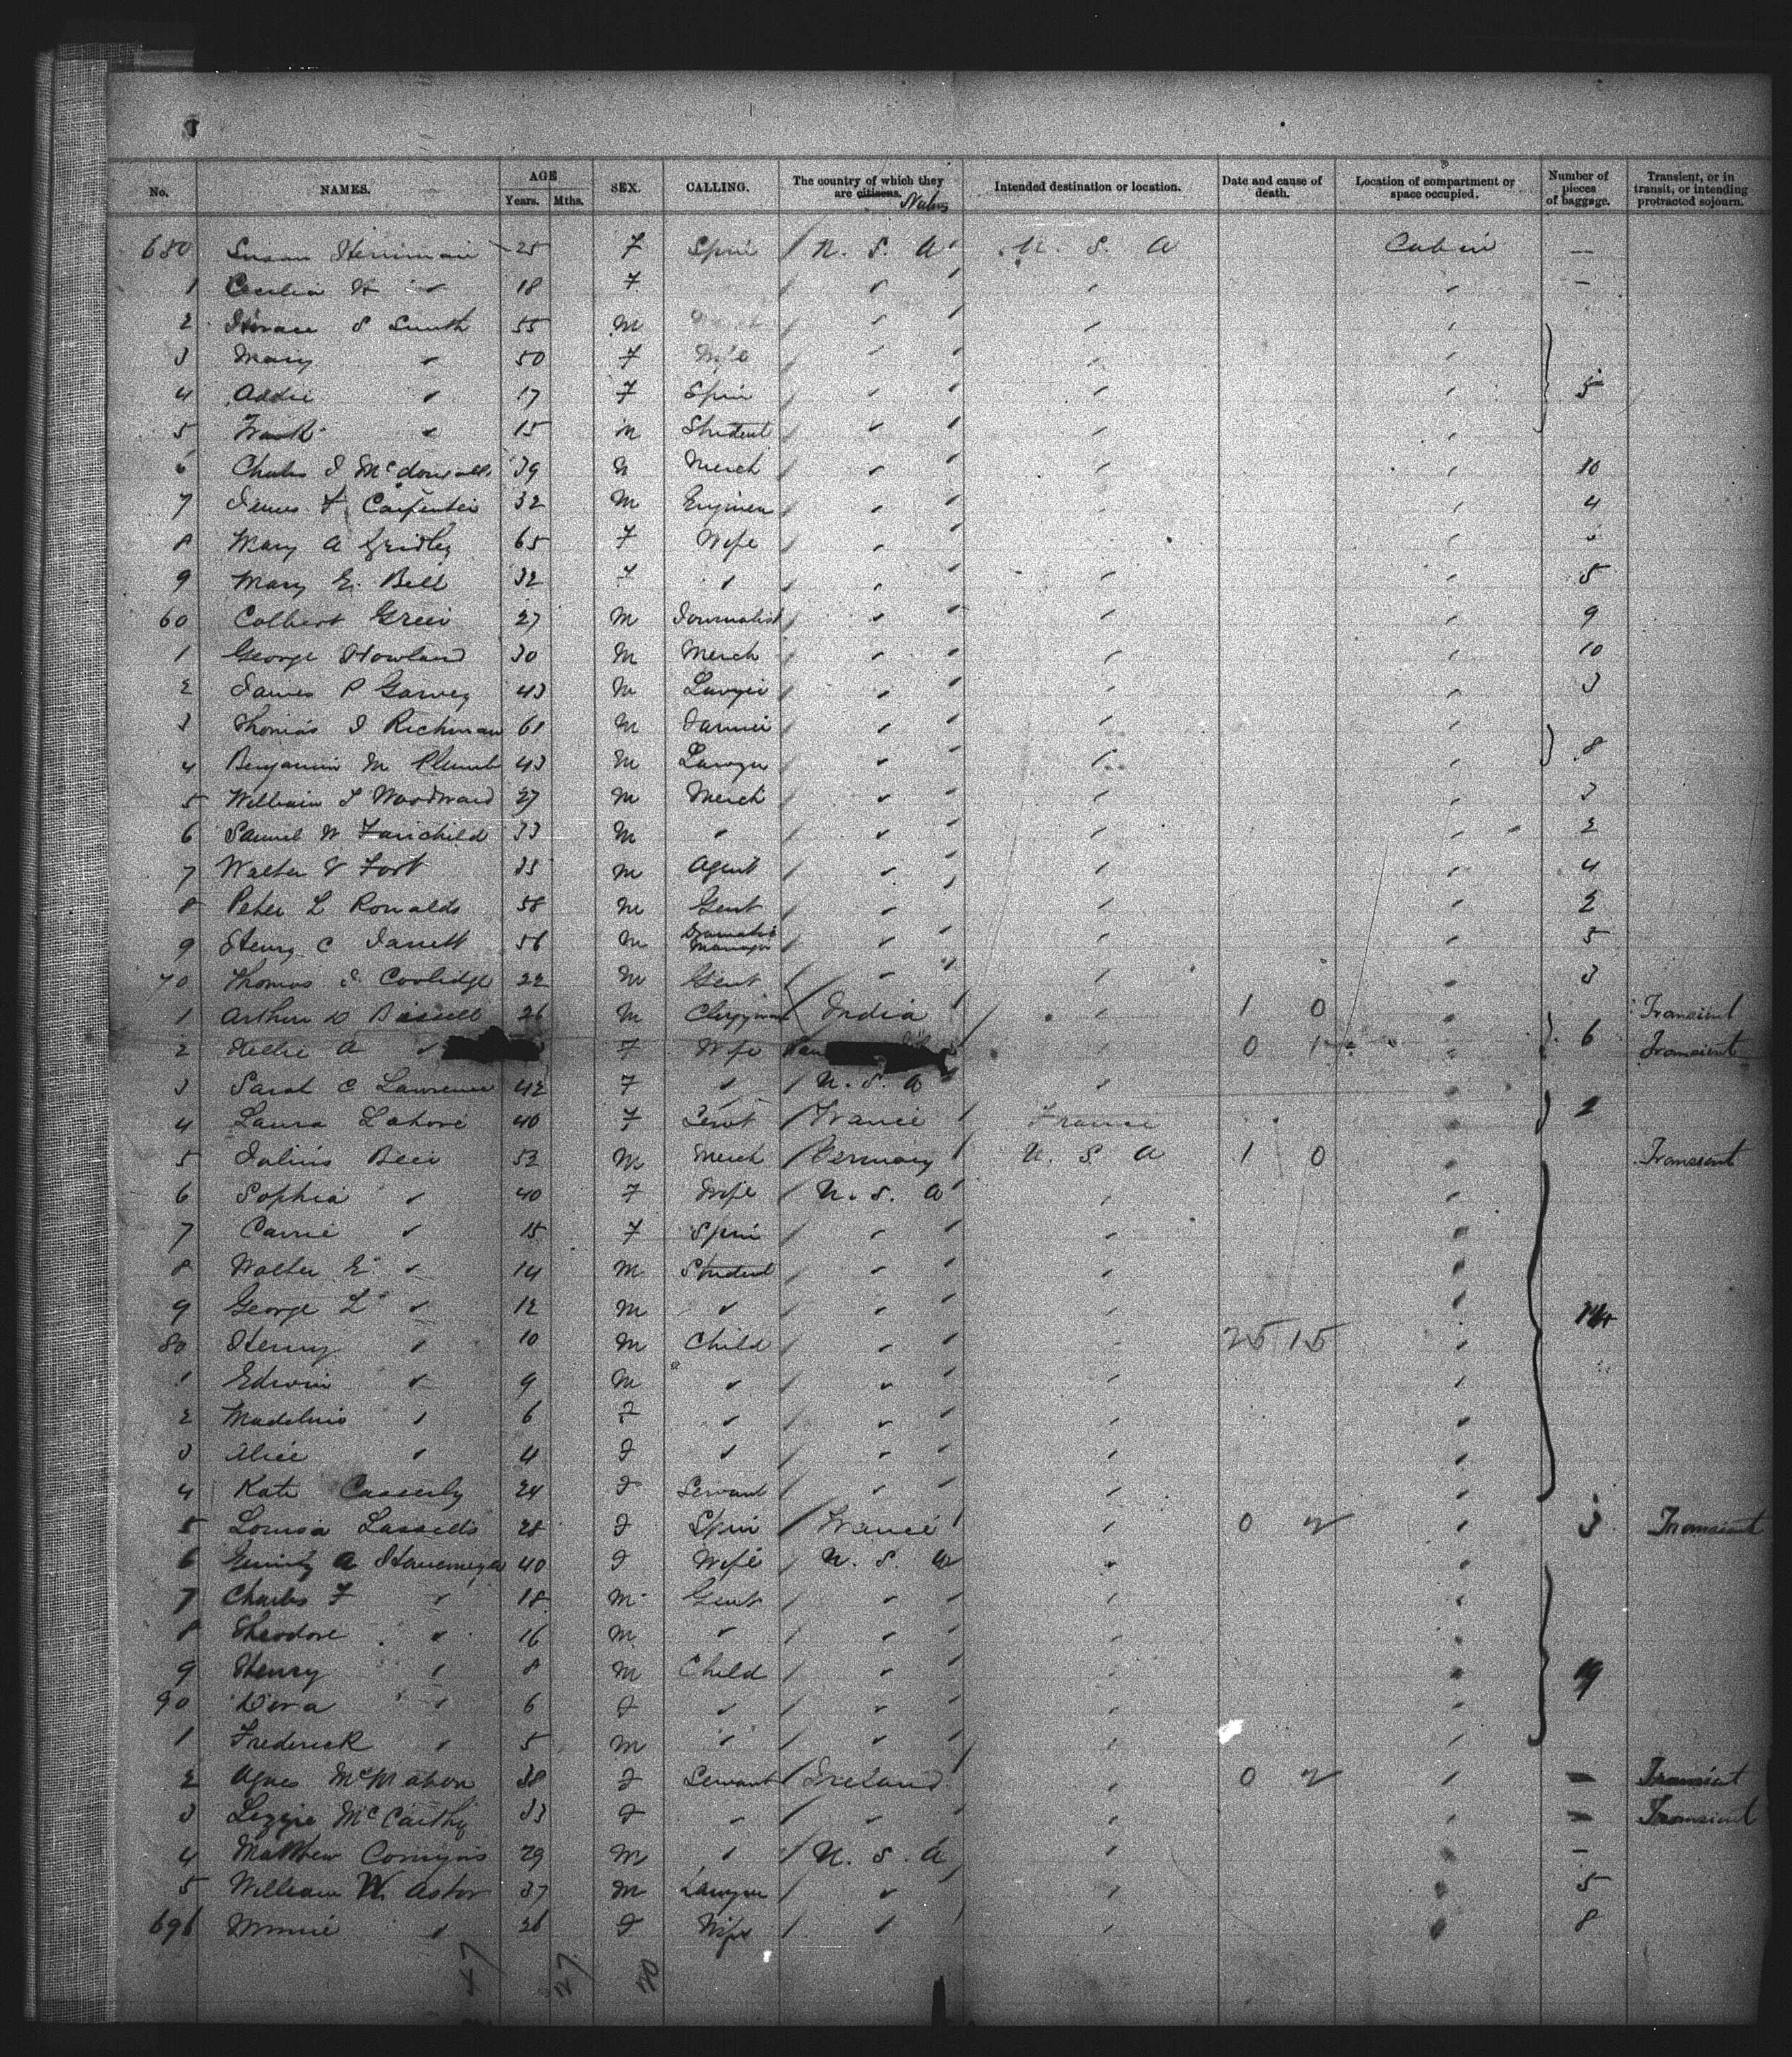 No. NAMES. AGE Years. Mths. SEX. CALLING. The country of which they are citizens. Intended destination or location. Date and cause of death. Location of compartment or space occupied. Number of pieces of baggage. Transient, or in transit, or intending protracted sojourn.
Susan 25 F Spin U. S. A U. S. A Cabin —
1 Cecilia H " 18 F —
2 Horace S Smith 55 M
3 Mary " 50 F Wife
4 Addie " 17 F Spin 5
5 Frank " 15 M Student
6 McDowall 39 Merch 10
7 Carpenter 32 M 4
8 Mary A Gridley 65 F Wife
9 Mary E. Bell 32 F " 5
60 Colbert Greer 27 M Journalist 9
1 George Howland 30 M Merch 10
2 James P Garvey 43 M Lawyer 3
3 Thomas J Richman 61 M Farmer
4 Benjamin M Plumb 43 M Lawyer 8
5 William L Woodward 27 M Merch 3
6 Samuel W Fairchild 33 M " 2
7 Walter Fort 35 M Agent 4
8 Peter L Ronalds 58 M Gent 2
9 Henry C Jarrett 56 M Dramatic Manager 5
70 Thomas J Coolidge 22 M Gent 3
1 Arthur D Bissell 26 M Clergyman India 1 0 Transient
2 Nellie A " F Wife 0 1 6 Transient
3 Sarah C Lawrence 42 F " U. S. A
4 Laura Lahore 40 F Servt France France 2
5 Julius Beer 53 M Merch Germany U. S. A 1 0 Transient
6 Sophia " 40 F Wife U. S. A
7 Carrie " 15 F Spin
8 Walter E " 14 M Student
9 George L " 12 M " 14
80 Henry " 10 M Child 25 15
1 Edwin " 9 M "
2 " 6 F "
3 Alice " 4 F "
4 Kate Casserly 24 F Servant
5 Louisa Lassells 28 F Spin France 0 2 3 Transient
6 40 F Wife U. S. A
7 Charles F " 18 M Gent
8 Theodore " 16 M "
9 Henry " 8 M Child 19
90 Dora " 6 F "
1 Frederick " 5 M "
2 Agnes McMahon 38 F Servant Ireland 0 2 — Transient
3 Lizzie McCarthy 33 F " " — Transient
4 Matthew 29 M " U. S. A —
5 William W Astor 37 M Lawyer 5
696 Minnie " 26 F Wife 8